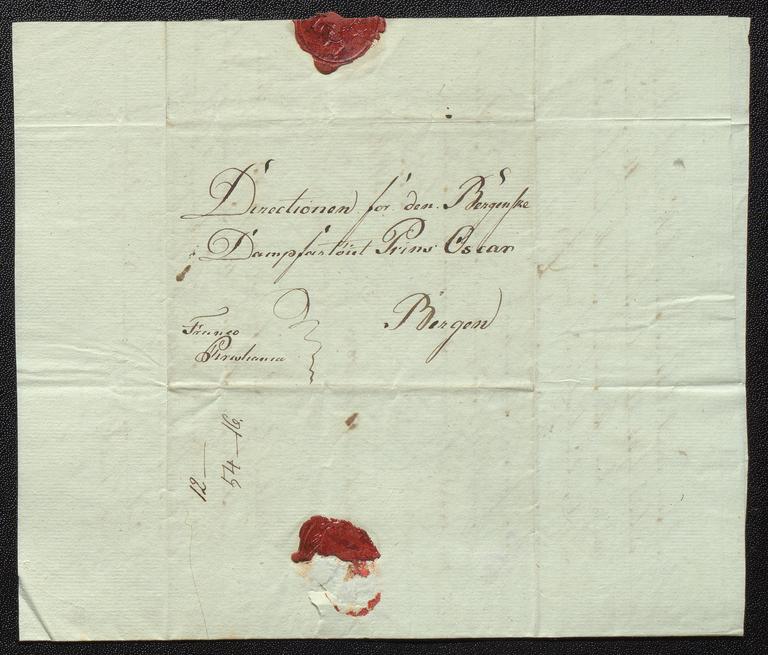 Directionen for den Bergenske
Dampfartöiet Prins Oscar
Bergen
Franco
12 —
54 — 16.